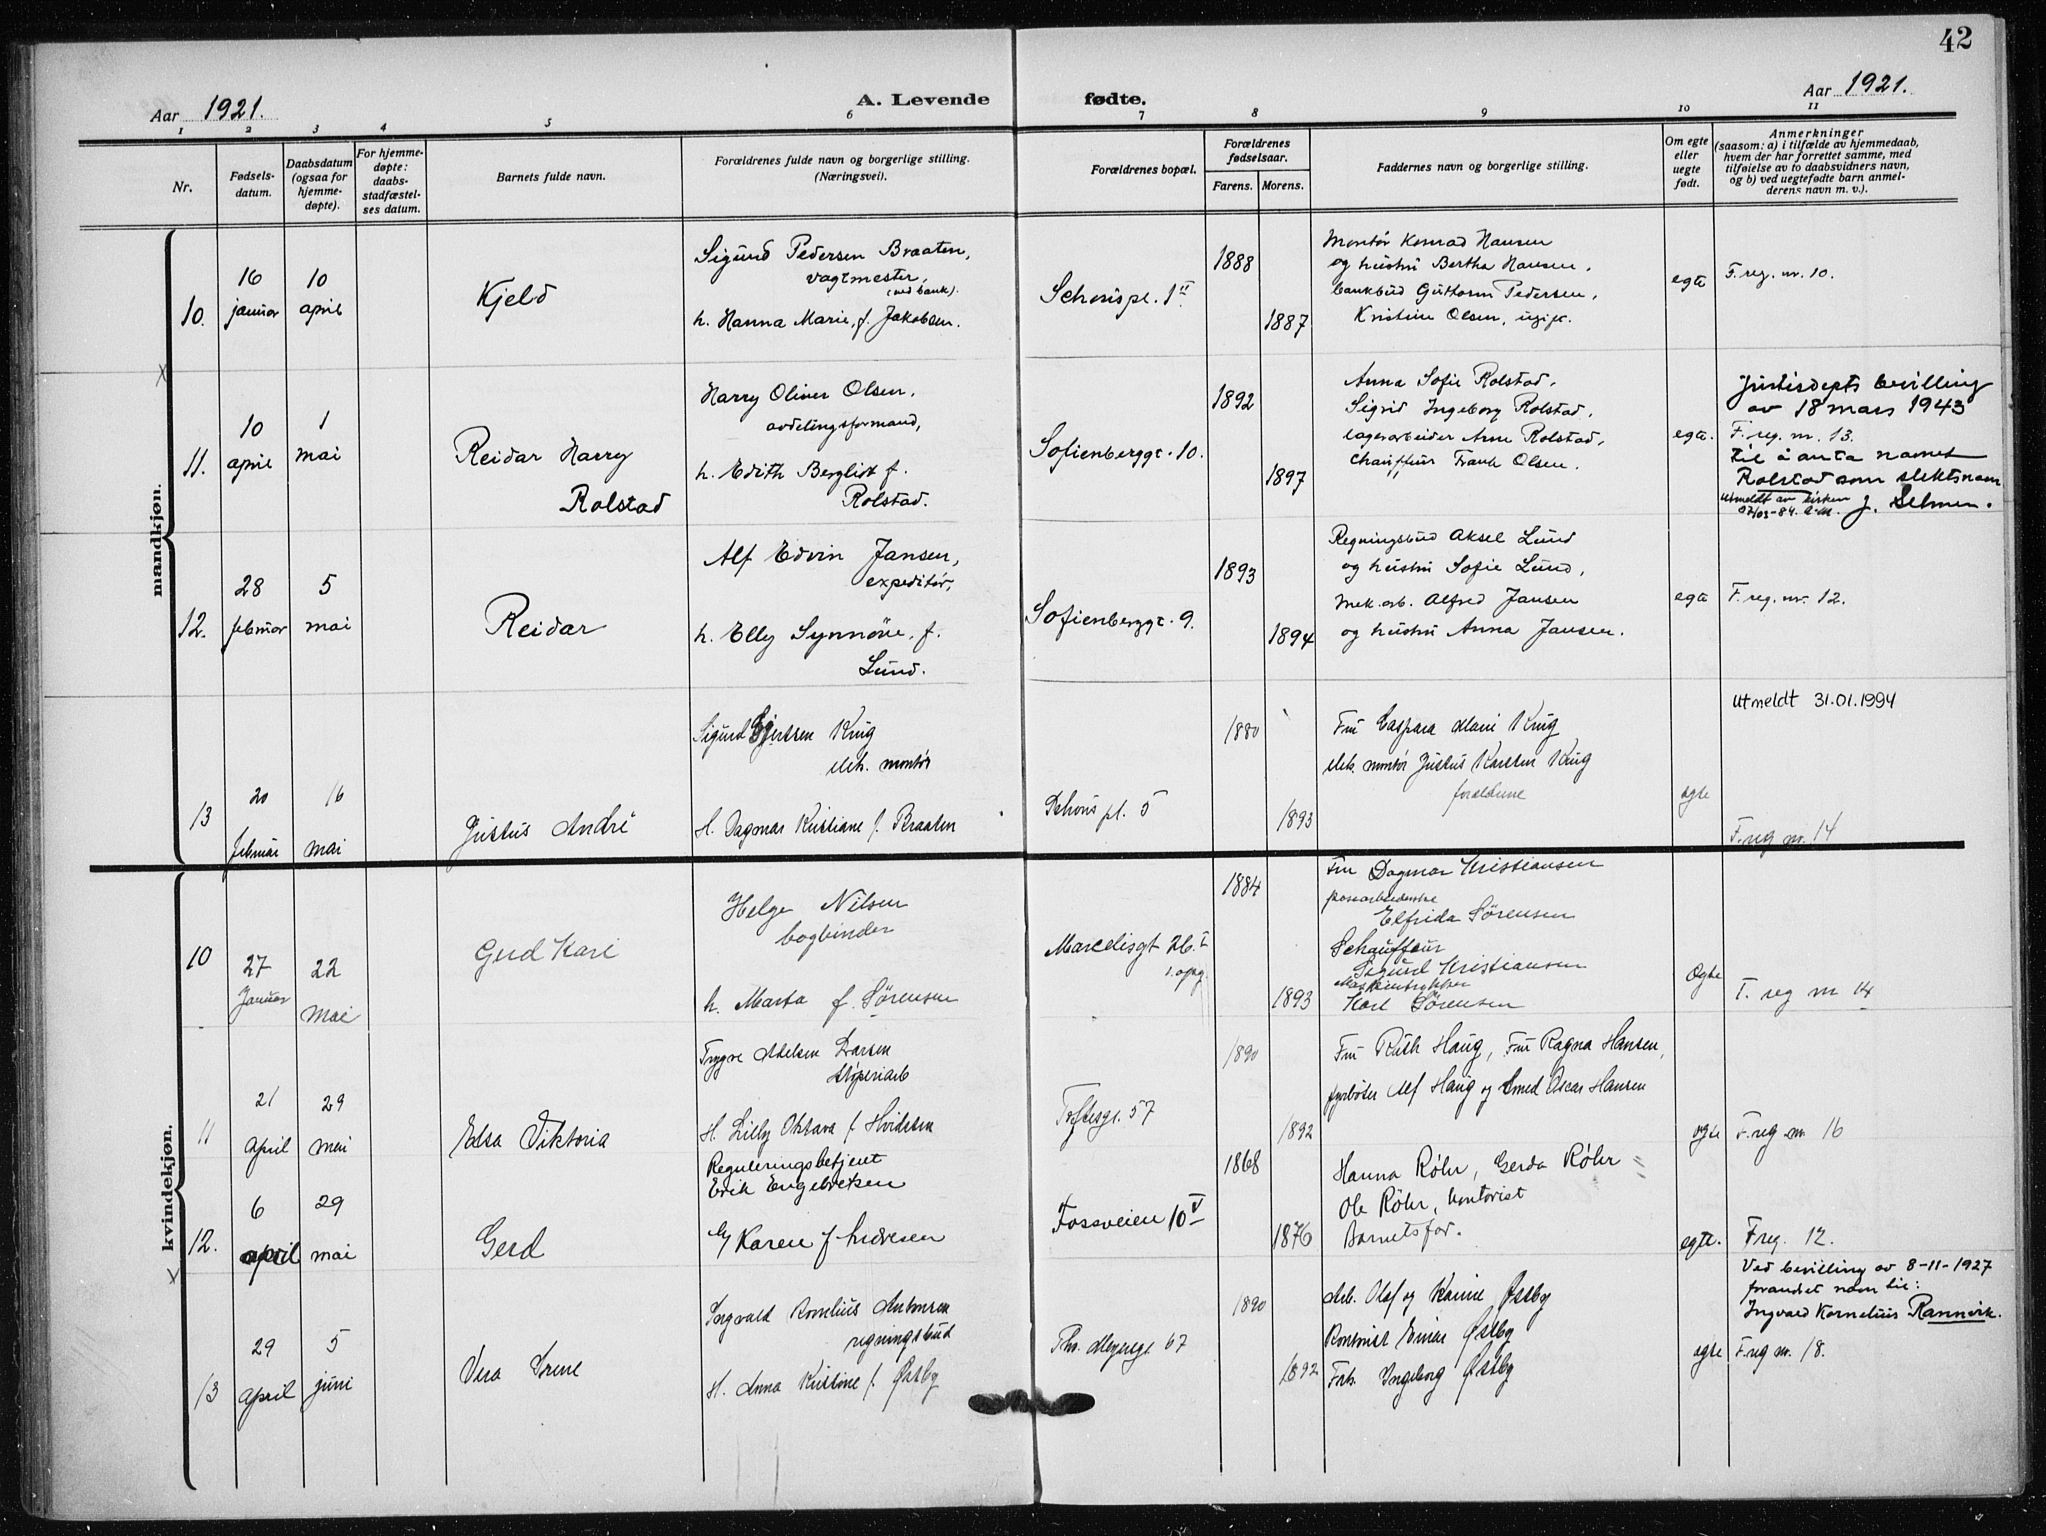 42
Aar 1921.
A. Levende fødte.
Aar 1921.
1 2 3 4 5 6 7 8 9 10 11
Nr.
Fødsels-
datum.
Daabsdatum
(ogsaa for
hjemme-
døpte).
For hjemme-
døpte:
daabs-
stadfæstel-
ses datum.
Barnets fulde navn.
Forældrenes fulde navn og borgerlige stilling.
(Næringsvei).
Forældrenes bopæl.
Forældrenes
fødselsaar.
Farens. Morens.
Faddernes navn og borgerlige stilling.
Om egte
eller
uegte
født.
Anmerkninger
(saasom: a) i tilfælde av hjemmedaab,
hvem der har forrettet samme, med
tilføielse av to daabsvidners navn,
og b) ved uegtefødte barn anmel-
derens navn m. v.).
mandkjøn.
10.
16
januar
10
april
Kjeld
Sigurd Pedersen Braaten,
vagtmester,
(ved bank).
h. Hanna Marie, f. Jakobsen.
Schouspl. 1 II
1888
1887
Montør Konrad Hansen
og hustru Bertha Hansen,
bankbud Guttorm Pedersen,
Kristine Olsen, ugift.
egte
F. reg. nr. 10.
x
11.
10
april
1
mai
Reidar Harry
Rolstad
Harry Oliver Olsen,
avdelingsformand,
h. Edith Bergliot f.
Rolstad.
Sofienberggt. 10.
1892
1897
Anna Sofie Rolstad,
Sigrid Ingeborg Rolstad,
lagerarbeider Arne Rolstad,
Chauffeur Frank Olsen.
egte.
Justisdepts bevilling
av 18 mars 1943
F. reg. nr. 13.
til å anta namet
Rolstad som slektsnam
Utmeldt av kirken
07/03-84. A.M.
J. Selmer.
12.
28
februar
5
mai
Reidar
Alf Edvin Jansen,
expeditør,
h. Elly Synnøve, f.
Lund.
Sofienberggt. 9.
1893
1894
Regningsbud Aksel Lund
og hustru Sofie Lund,
Mek. arb. Alfred Jansen
og hustru Anna Jansen.
egte
F. reg. nr. 12.
13
20
februar
16
mai
Justus André
Sigurd Krug
elek. montør
H. Dagmar Kristiane f. Braaten
Schous pl. 5
1880
1893
Fru Caspara Marie Krug
elek. montør Justus Karsten Krug
forældrene
egte
Utmeldt 31.01.1994
F. reg nr. 14
kvindekjøn.
10
27
Januar
22
Mai
Gerd Kari
Helge Nilsen
bogbinder
h. Marta f. Sørensen
Marcelisgt 26. I
1. opg.
1884
1893
Fru Dagmar Kristiansen
Elfrida Sørensen
Schauffeur
Sigurd Kristiansen
Karl Sørensen
Egte
F. reg nr 14
11
21
april
29
mai
Elsa Viktoria
Trygve Adelsen Larsen
støperiarb
H. Lilly Oktava f. Hvidsten
Toftesgt. 57
1890
1892
Fru Ruth Haug, Fru Ragna Hansen,
fyrbøter Alf Haug og Oscar Hansen
egte
F. reg nr. 16
12.
6
april
29
mai
Gerd
Reguleringsbetjent
Erik Engebretsen
og Karen f Andresen
Fossveien 10 V
1868
1876
Hanna Røhr, Gerda Røhr
Ole Røhr, kontorist
Barnets far.
egte.
F reg. 12.
x
13
29
april
5
juni
Vera Irene
Ingvald Kornelius Antonsen
regningsbud
H. Anna Kristine f. Østby
Ths. Meyersgt. 67
1890
1892
Arb. Olaf og Karine Østby
Kontorist Einar Østby
Frk. Ingeborg Østby
egte
Ved bevilling av 8-11-1927
forandret navn til:
Ingvald Kornelius Rannvik.
F. reg nr. 18.